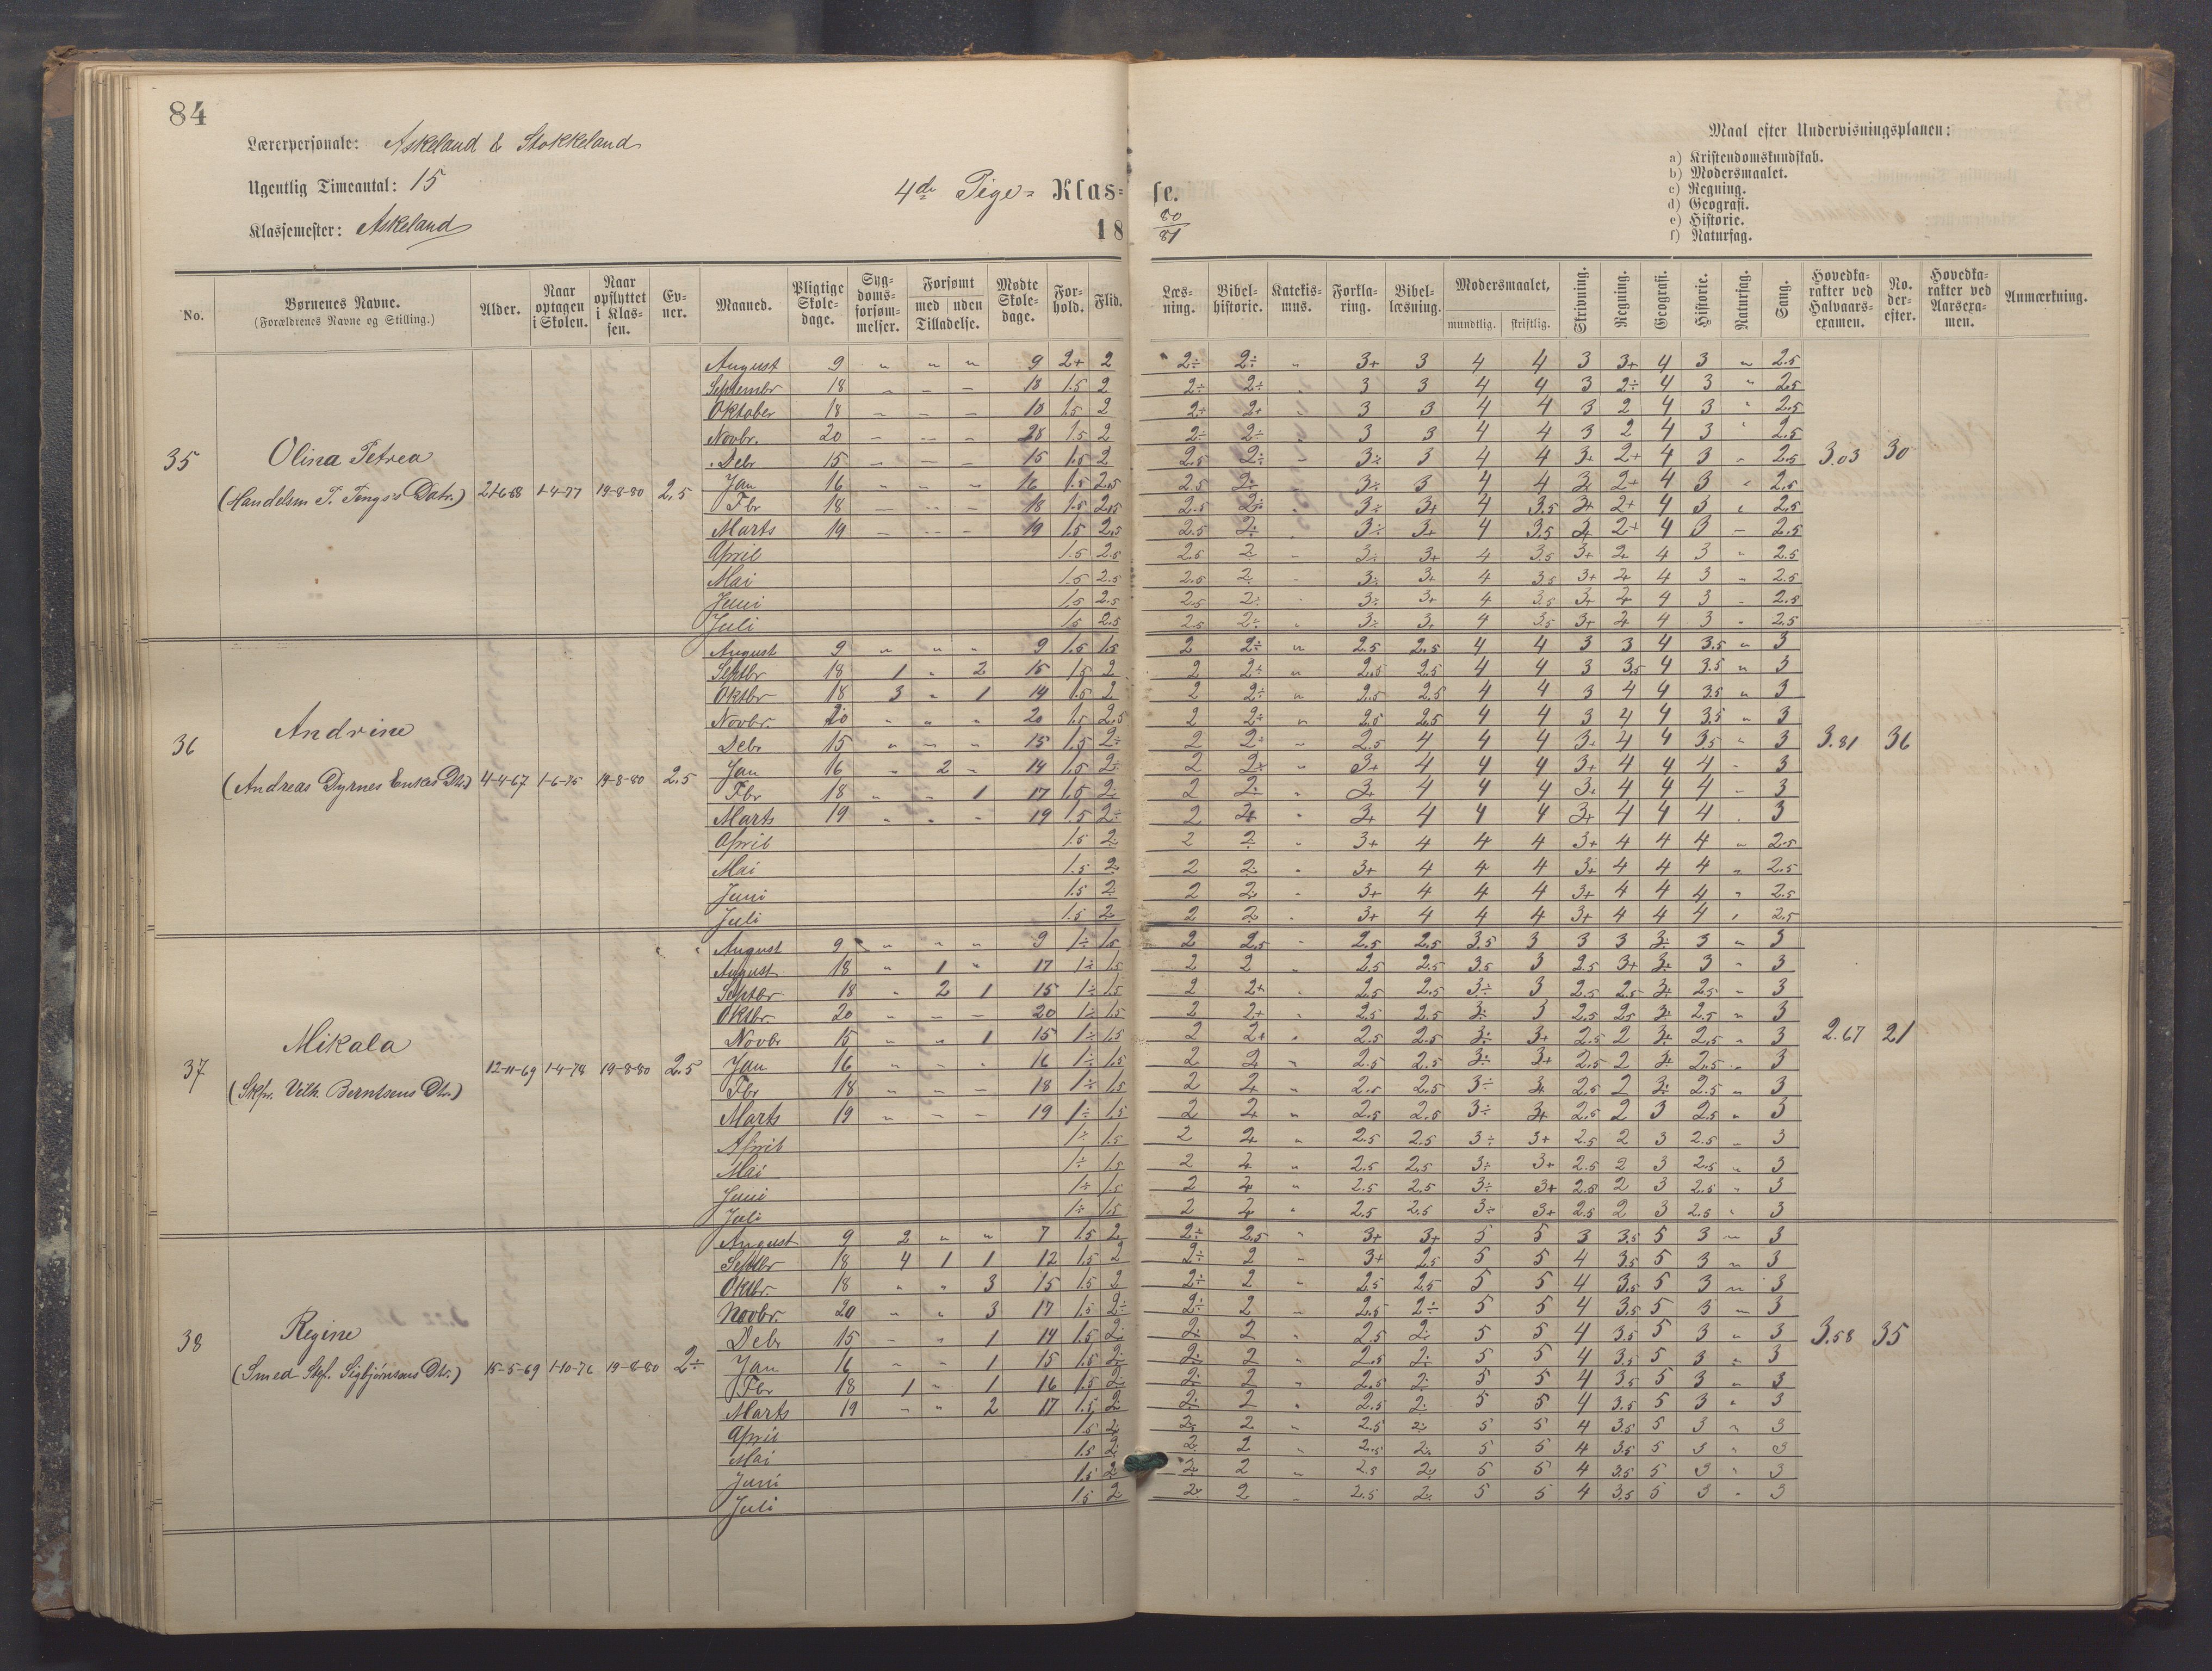 84
Lærerpersonale: Askeland & Stokkeland
Ugentlig Timeantal: 15
Klassemester: Askeland
4de Pige= Klas= se.
18 80/81
Maal efter Undervisningsplanen:
a) Kristendomskundskab.
b) Modersmaalet.
c) Regning.
d) Geografi.
e) Historie.
f) Naturfag.
No. | Børnenes Navne. (Forældrenes Navne og Stilling.) | Alder. | Naar optagen i Skolen. | Naar opflyttet i Klassen. | Evner. | Maaned. | Pligtige Skoledage. | Sygdomsforsømmelser. | Forsømt med uden Tilladelse. | Mødte Skoledage. | Forhold. | Flid. | Læsning. | Bibelhistorie. | Katekismus. | Forklaring. | Bibellæsning. | Modersmaalet, mundtlig. skriftlig. | Skrivning. | Regning. | Geografi. | Historie. | Naturfag. | Sang. | Hovedkarakter ved Halvaarsexamen. | No. derefter. | Hovedkarakter ved Aarsexamen. | Anmærkning.
35 Olina Petrea
(Handelsm T. Tengs's Datr.) 1-4-77 19-8-80 2.5
August 9 " " " 9 2+ 2 2÷ 2÷ " 3+ 3 4 4 3 3+ 4 3 " 2.5
Septembr 18 – – – 18 1.5 2 2÷ 2÷ " 3 3 4 4 3 2÷ 4 3 " 2.5
Oktober 18 – – – 18 1.5 2 2÷ 2+ " 3 3 4 4 3 2 4 3 " 2.5
Novbr. 20 – – – 20 1.5 2 2÷ 2÷ " 3 3 4 4 3 2 4 3 " 2.5
Debr 15 – – – 15 1.5 2 2.5 2÷ " 3÷ 3 4 4 3+ 2+ 4 3 " 2.5 3.03 30
Jan 16 – – – 16 1.5 2.5 2.5 2÷ " 3÷ 3 4 4 3+ 2+ 4 3 " 2.5
Fbr 18 – – – 18 1.5 2.5 2.5 2÷ " 3÷ 3+ 4 3.5 3+ 2+ 4 3 " 2.5
Marts 19 – – – 19 1.5 2.5 2.5 2÷ " 3÷ 3+ 4 3.5 3+ 2+ 4 3 – 2.5
April 1.5 2.5 2.5 2 – 3÷ 3+ 4 3.5 3+ 2+ 4 3 " 2.5
Mai 1.5 2.5 2.5 2 – 3÷ 3+ 4 3.5 3+ 2+ 4 3 " 2.5
Juni 1.5 2.5 2.5 2÷ – 3÷ 3+ 4 3.5 3+ 2+ 4 3 – 2.5
Juli 1.5 2.5 2.5 2÷ " 3÷ 3+ 4 3.5 3+ 2+ 4 3 " 2.5
36 Andrine
(Andreas Dyrnes Enkes Dtr.) 4-4-67 1-6-75 19-8-80 2.5
August 9 " " " 9 1.5 1.5 2 2÷ " 2.5 2.5 4 4 3 3 4 3.5 " 3
Septbr 18 1 " 2 15 1.5 2 2 2÷ " 2.5 2.5 4 4 3 3.5 4 3.5 " 3
Oktbr 18 3 " 1 14 1.5 2 2 2÷ " 2.5 2.5 4 4 3 4 4 3.5 " 3
Novbr. 20 " " " 20 1.5 2.5 2 2÷ " 2.5 2.5 4 4 3 4 4 3.5 " 3
Debr 15 " " " 15 1.5 2÷ 2 2+ " 2.5 4 4 4 3+ 4 4 3.5 " 3 3.81 36
Jan 16 " 2 – 14 1.5 2÷ 2 2+ " 3+ 4 4 4 3+ 4 4 4 – 3
Fbr 18 " " 1 17 1.5 2 2 2÷ " 3+ 4 4 4 3+ 4 4 4 – 3
Marts 19 " " – 19 1.5 2÷ 2 2+ " 3+ 4 4 4 3+ 4 4 4 . 3
April 1.5 2÷ 2 2 " 3+ 4 4 4 3+ 4 4 4 " 2.5
Mai 1.5 2 2 2 " 3+ 4 4 4 3+ 4 4 4 " 2.5
Juni 1.5 2 2 2 " 3+ 4 4 4 3+ 4 4 4 " 2.5
Juli 1.5 2 2 2 " 3+ 4 4 4 3+ 4 4 4 " 2.5
37 Mikala
(Skpr. Vilh. Berntsens Dtr.) 12-11-69 1-4-78 19-8-80 2.5
August 9 " " " 9 1÷ 1.5 2 2.5 " 2.5 2.5 3.5 3 3 3 3÷ 3 " 3
August 18 " 1 " 17 1÷ 1.5 2 2 " 2.5 2.5 3.5 3 2.5 3+ 3÷ 3 " 3
Septbr 18 " 2 1 15 1÷ 1.5 2 2+ " 2.5 2.5 3÷ 3 2.5 2.5 3÷ 2.5 – 3
Oktbr. 20 – – – 20 1÷ 1.5 2 2+ " 2.5 2.5 3÷ 3 2.5 2.5 3÷ 2.5 " 3
Novbr 15 " " 1 15 1÷ 1.5 2 2+ " 2.5 2.5 3÷ 3+ 2.5 2 3+ 2.5 " 3 2.67 21
Jan 16 " – " 16 1÷ 1.5 2 2 " 2.5 2.5 3÷ 3+ 2.5 2 3÷ 2.5 – 3
Fbr 18 " – – 18 1÷ 1.5 2 2+ " 2.5 2.5 3÷ 3+ 2.5 2 3÷ 2.5 " 3
Marts 19 " – – 19 1÷ 1.5 2 2+ " 2.5 2.5 3÷ 3+ 2.5 2 3 2.5 " 3
April 1÷ 1.5 2 2+ " 2.5 2.5 3÷ 3+ 2.5 2 3 2.5 – 3
Mai 1÷ 1.5 2 2+ " 2.5 2.5 3÷ 3+ 2.5 2 3 2.5 " 3
Juni 1÷ 1.5 2 2+ " 2.5 2.5 3÷ 3+ 2.5 2 3 2.5 " 3
Juli 1÷ 1.5 2 2+ " 2.5 2.5 3÷ 3+ 2.5 2 3 2.5 " 3
38 Regine
(Smed Stef. Sigbjørnsens Dtr.) 15-5-69 1-10-76 19-8-80 2÷
August 9 2 " " 7 1.5 2 2÷ 2.5 " 3+ 3+ 5 5 3 3.5 5 3 – 3
Septbr 18 4 1 1 12 1.5 2 2÷ 2 – 3+ 2.5 5 5 4 3.5 5 3 " 3
Oktbr. 18 " " 3 15 1.5 2 2÷ 2 " 2.5 2.5 5 5 4 3.5 5 3 – 3
Novbr. 20 " " 3 17 1.5 2÷ 2÷ 2 – 2.5 2÷ 5 5 4 3.5 5 3 – 3
Debr 15 – " 1 14 1.5 2÷ 2÷ 2 " 2.5 2÷ 5 5 4 3.5 5 3 " 3 3.58 35
Jan 16 – – 1 15 1.5 2÷ 2÷ 2 " 2.5 2÷ 5 5 4 3.5 5 3 " 3
Fbr 18 1 " 1 16 1.5 2÷ 2÷ 2 " 2.5 2÷ 5 5 4 3.5 5 3 " 3
Marts 19 – " 2 17 1.5 2÷ 2÷ 2 " 2.5 2÷ 5 5 4 3.5 5 3 " 3
April 1.5 2÷ 2÷ 2 " 2.5 2÷ 5 5 4 3.5 5 3 " 3
Mai 1.5 2 2 2 " 2.5 2÷ 5 5 4 3.5 5 3 " 3
Juni 1.5 2 2 2 " 2.5 2÷ 5 5 4 3.5 5 3 " 3
Juli 1.5 2 2÷ 2 – 2.5 2÷ 5 5 4 3.5 5 3 " 3